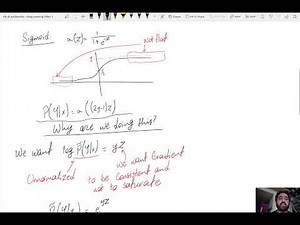 Sigmoid σ(z) = 1/(1+e^-z)
Not flat
1
P(y|x) = σ((2y-1)z)
Why are we doing this?
We want log P̃(y|x) = yz
Unnormalized
we want Gradient
to be Consistent and
not to saturate
P̃(y|x) = e^yz